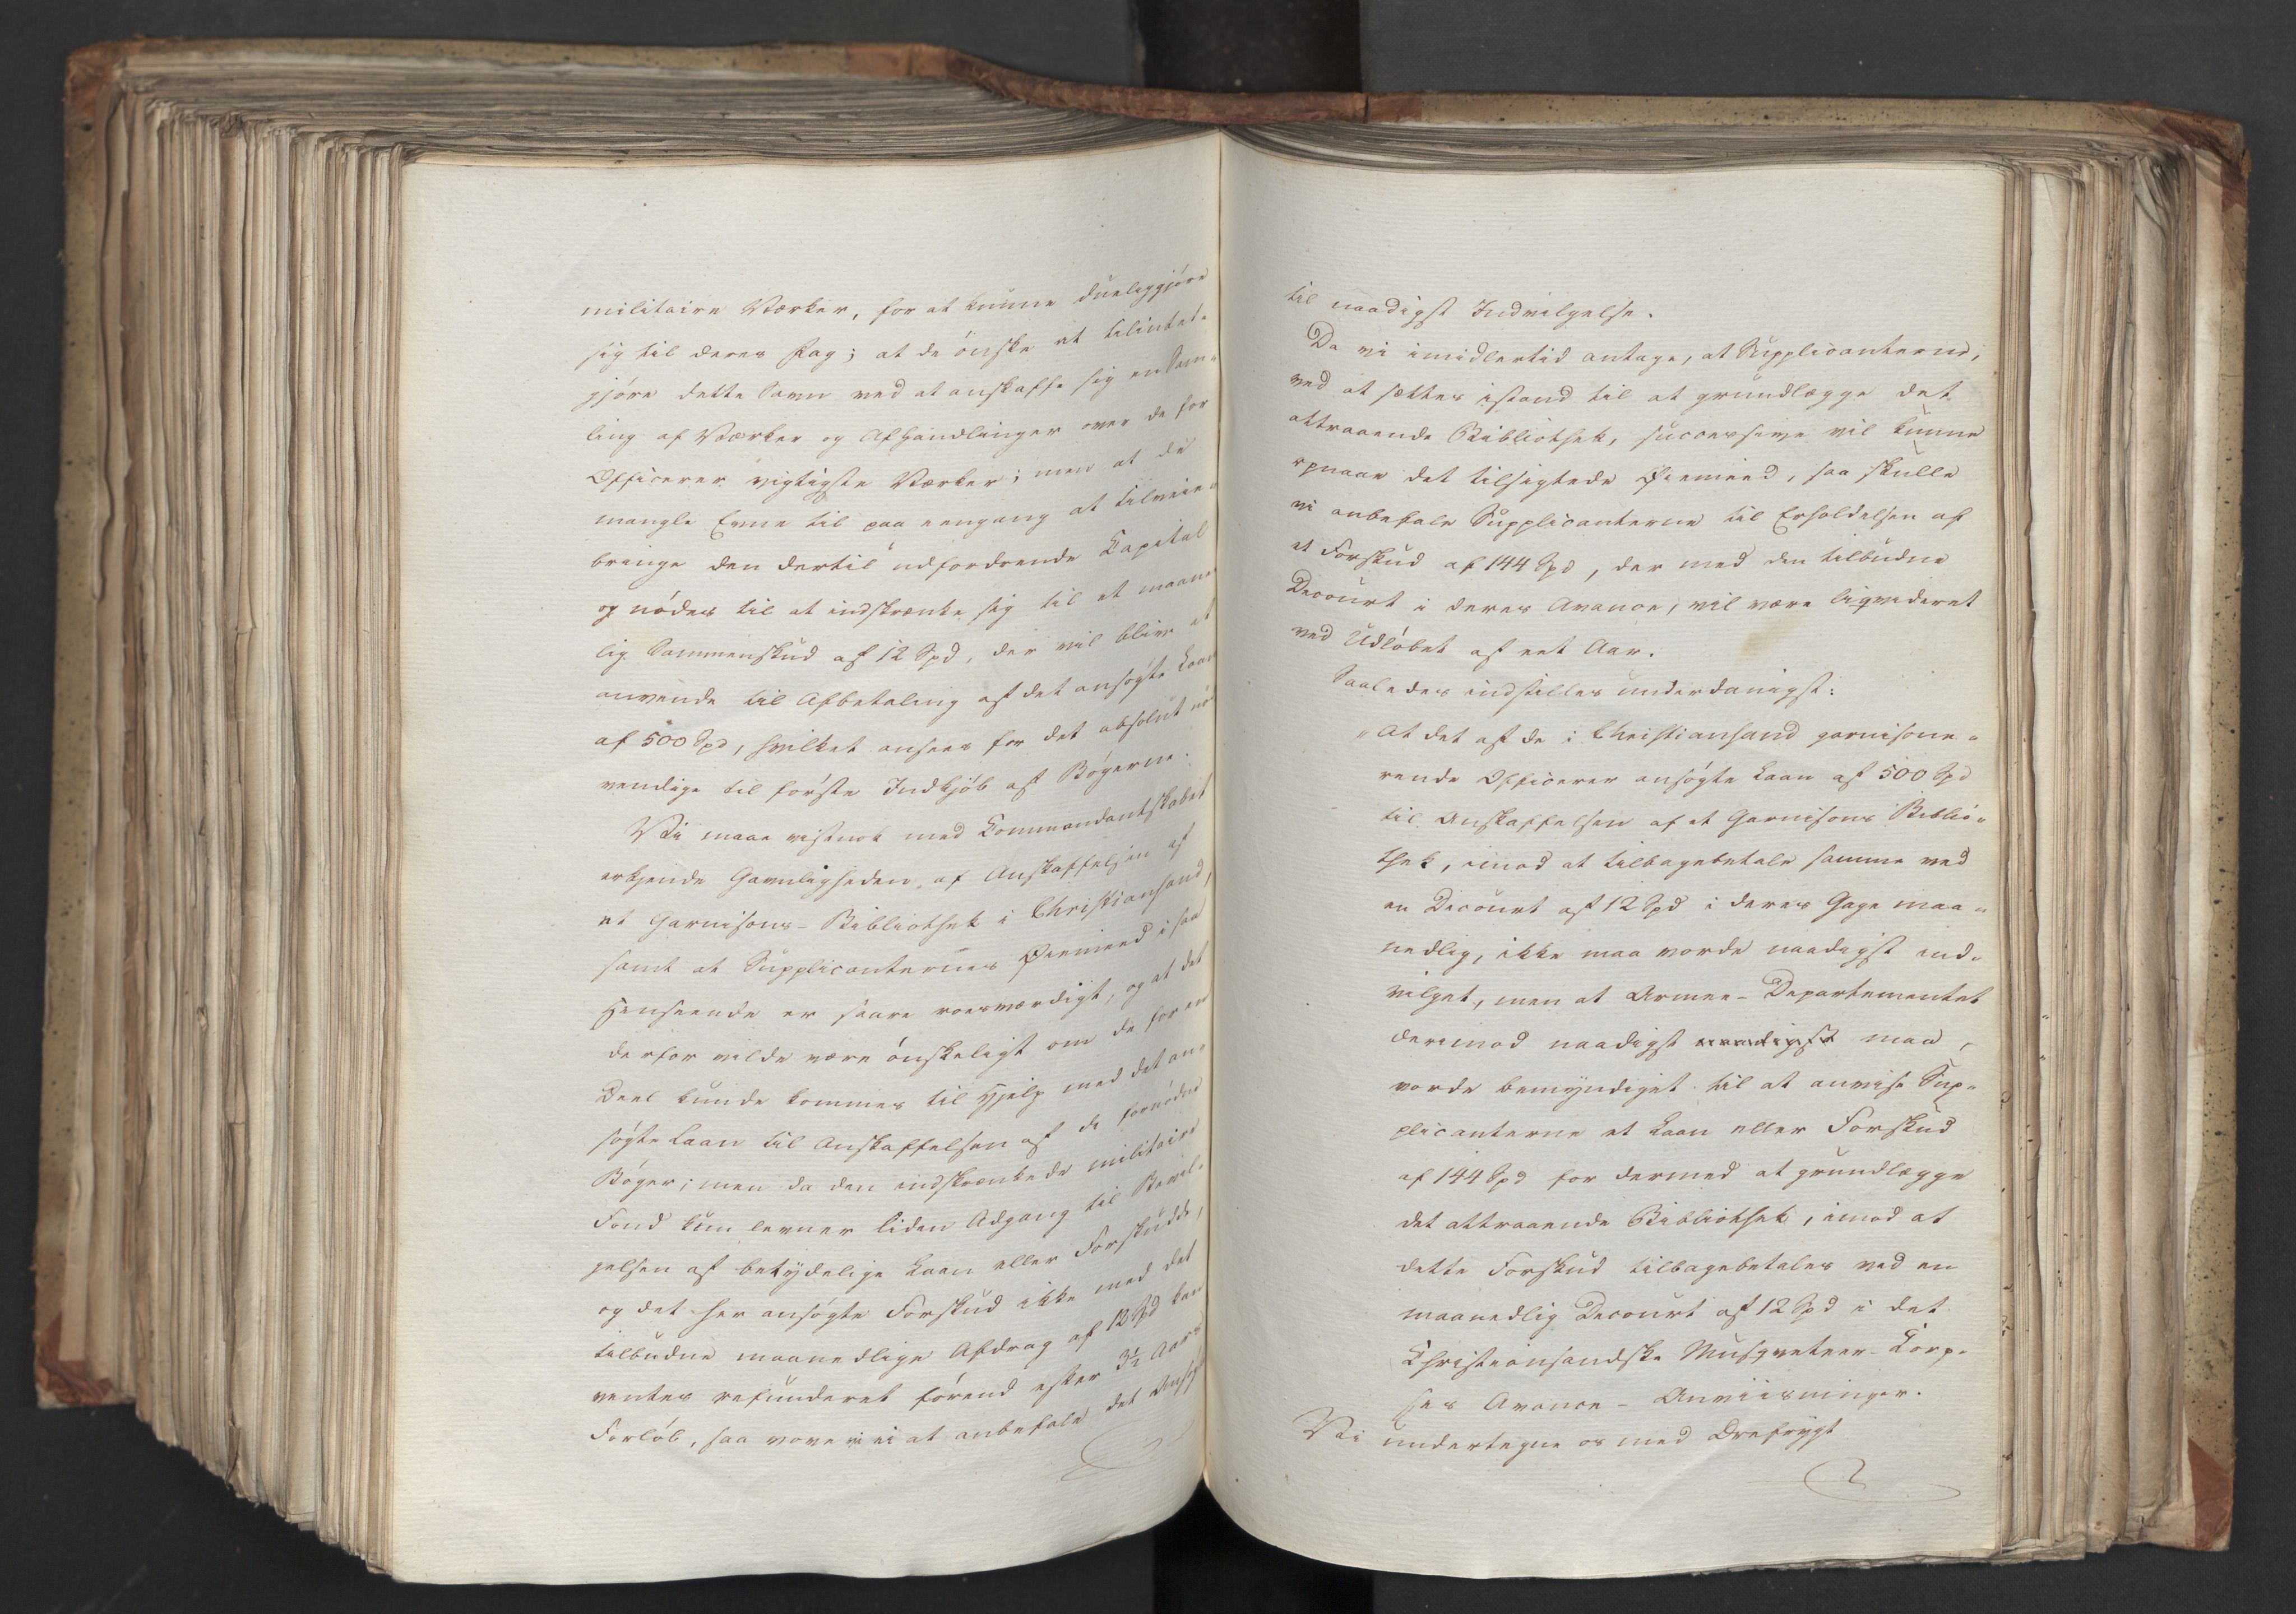 militaire Værker, for at kunne dueliggjöre
sig til deres Fag; at de önske at tilintet-
gjöre dette Savn ved at anskaffe sig en Sam-
ling af Værker og Afhandlinger over de for
Officerer vigtigste Værker; men at de
mangle Evne til paa eengang at tilveie-
bringe den dertil udfordrende Capital
og nödes til at indskrænke sig til et maaned-
lig Sammenskud af 12 Spd, der vil blive at
anvende til Afbetaling af det ansögte Laan
af 500 Spd, hvilket ansees for det absolut nöd-
vendige til förste Indkjöb af Bögerne.
Vi maae vistnok med Commandantskabet
erkjende Gavnligheden af Anskaffelsen af
et Garnisons-Bibliothek i Christiansand,
samt at Supplicanternes Öiemeed i saa
Henseende er saare roesværdigt, og at det
derfor vilde være önskeligt om de for en
Deel kunde kommes til Hjelp med det an-
sögte Laan til Anskaffelsen af de fornödne
Böger; men da den indskrænkede militaire
Fond kun levner liden Adgang til Bevil-
gelsen af betydelige Laan eller Forskudde,
og det her ansögte Forskud ikke med det
tilbudne maanedlige Afdrag af 12 Spd kan
ventes refunderet förend efter 3½ Aars
Forlöb, saa vove vi ei at anbefale det Ansögte
til naadigst Indvilgelse.
Da vi imidlertid antage, at Supplicanterne,
ved at sættes istand til at grundlægge det
attraaende Bibliothek, successive vil kunne
opnaae det tilsigtede Öiemeed, saa skulle
vi anbefale Supplicanterne til Erholdelsen af
et Forskud af 144 Spd, der med den tilbudne
Decourt i deres Avance, vil være liqvideret
ved Udlöbet af eet Aar.
Saaledes indstilles underdanigst:
"At det af de i Christiansand garnisone-
rende Officerer ansögte Laan af 500 Spd
til Anskaffelsen af et Garnisons Biblio-
thek, imod at tilbagebetale samme ved
en Decourt af 12 Spd i deres Gage maa-
nedlig, ikke maa vorde naadigst ind-
vilget, men at Armee-Departementet
derimod naadigst naadigst maa
vorde bemyndiget til at anvise Sup-
plicanterne et Laan eller Forskud
af 144 Spd for dermed at grundlægge
det attraaende Bibliothek, imod at
dette Forskud tilbagebetales ved en
maanedlig Decourt af 12 Spd i det
Christiansandske Musqveteer-Corp-
ses Avance-Anviisninger.
Vi undertegne os med Ærefrygt